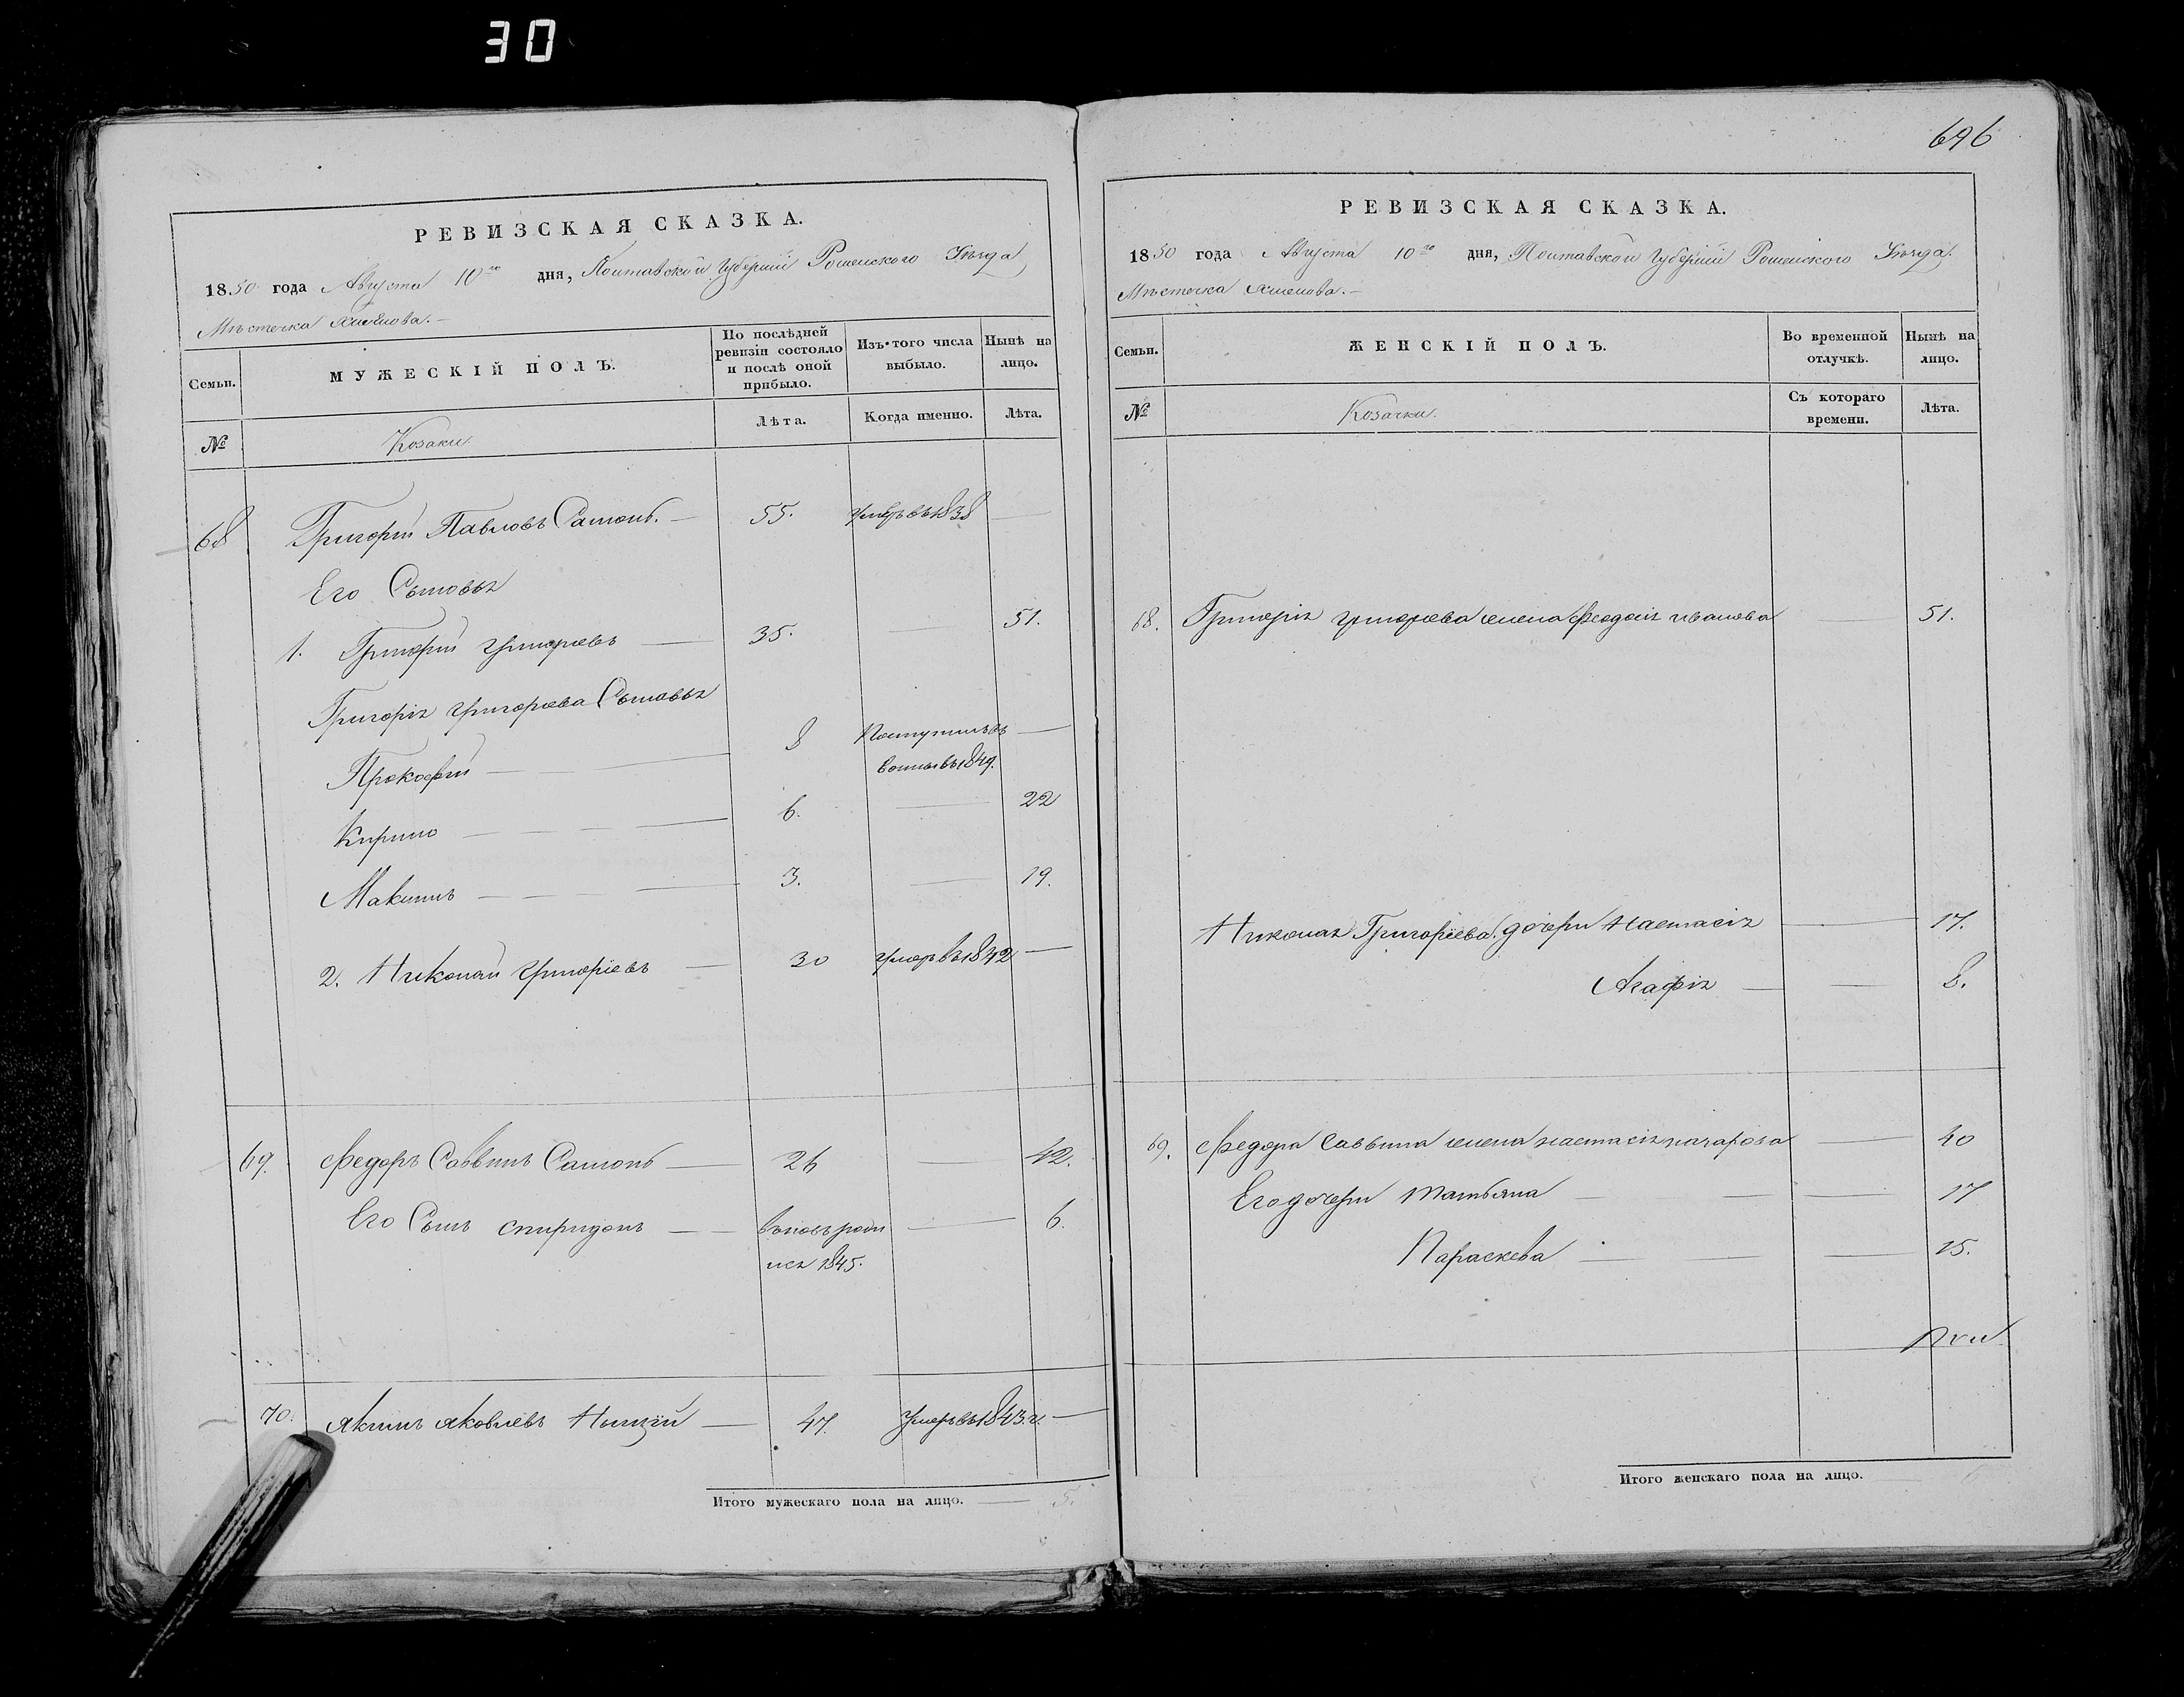 30
696
РЕВИЗСКАЯ СКАЗКА.
1850 года Августа 10го дня, Полтавской Губерніи Роменского Уѣзда
Мѣстечка Хмелова.
Семьи.
МУЖЕСКІЙ ПОЛЪ.
По послѣдней ревизіи состояло и послѣ оной прибыло.
Изъ того числа выбыло.
Нынѣ на лицо.
№
Козаки.
Лѣта.
Когда именно.
Лѣта.
68 Григорій Павловъ 55. умеръ въ 1838 —
Его Сыновья
1. Григорій Григорьевъ — 35. — 51.
Григорія Григорьева Сыновья
Прокофій — 8 Поступилъ въ —
въ 1849.
Кирило — 6. — 22
Максимъ — 3. — 19.
2. Николай Григоріевъ — 30 умеръ въ 1842 —
69. Федоръ Саввинъ — 26 — 42.
Его Сынъ Спиридонъ — вновь роди — 6.
лся 1845.
70. Якимъ Яковлевъ — 47. Умеръ въ 1843 г. —
Итого мужескаго пола на лицо. — 5.
РЕВИЗСКАЯ СКАЗКА.
1850 года Августа 10го дня, Полтавской Губерніи Роменского Уѣзда.
Мѣстечка Хмелова.
Семьи.
ЖЕНСКІЙ ПОЛЪ.
Во временной отлучкѣ.
Нынѣ на лицо.
№
Козачки.
Съ котораго времени.
Лѣта.
68. Григорія Григорьева жена Феодосія Иванова — 51.
Николая Григоріева дочери Настасія — 17.
Агафія — — 8.
69. Федора Саввина жена Настасія Захарова — 40
Его дочери Татьяна — — 17
Параскева — — 15.
Итого женскаго пола на лицо.